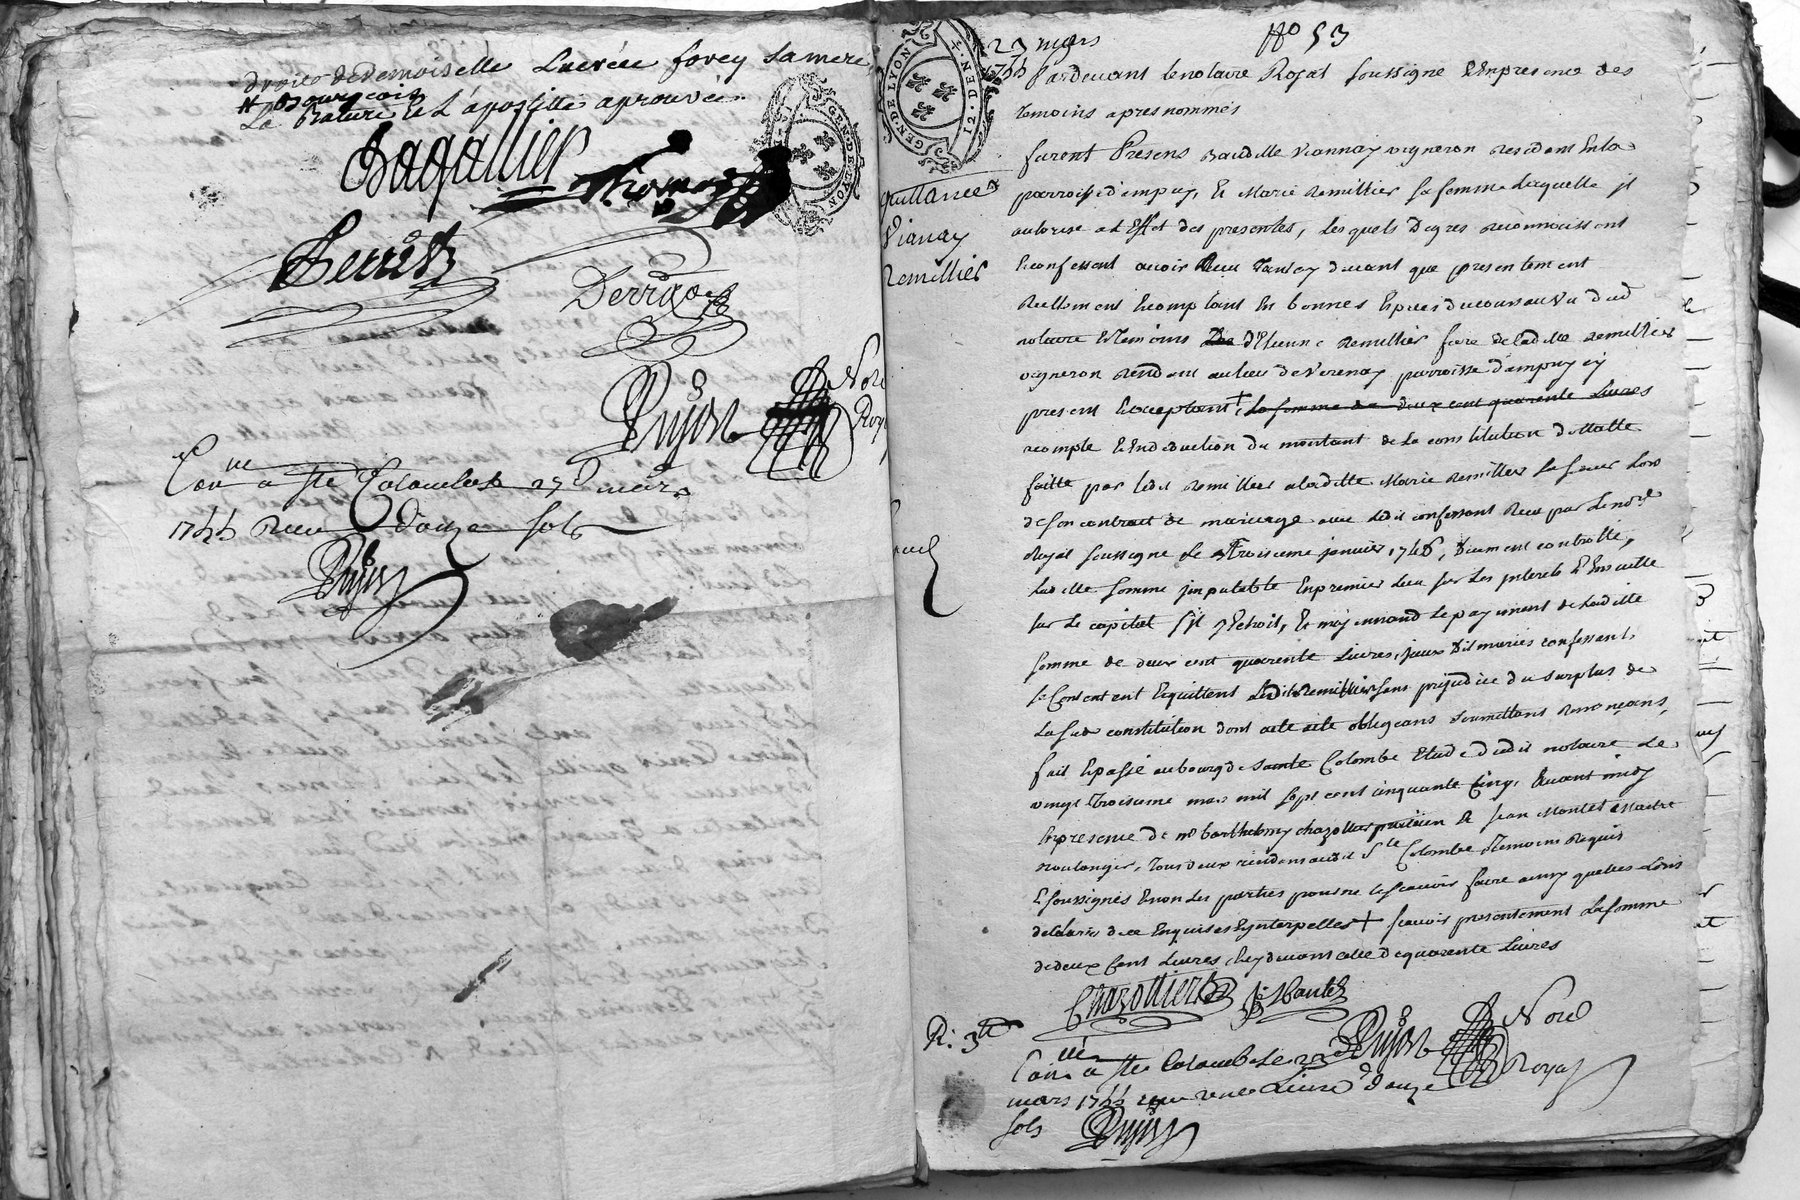 droits de demoiselle Lucrece forey sa mere
# Bourgeois
La Rature et L'apostille aprouvée.
Bagallier
Thomas
Perret
Derrion
Dujast Nore
Roya
Con.lle a Ste Colombe le 27e mars
1755 Recu douze sols
Dujast
GEN·DE LYON·
GEN·DE LYON· 12·DEN·
23 mars
1755
No 53
quittance
Vianay
Remillier
Pardevant le notaire Royal soussigné Et En presence des
temoins apres nommés
furent Presens Baudille Viannay vigneron Resident En la
parroisse d'ampuy, Et Marie Remillier sa femme laquelle il
autorise a L'Effet des presentes, lesquels de gres reconnoissent
Et confessent avoir Reçu tant cy devant que presentement
Reellement Et comptant En bonnes Especes du cours au Vu dud
notaire Et temoins D'Etienne Remillier frere de ladite Remillier
vigneron Resident au lieu de Verenay parroisse d'ampuy cy
present Et acceptant + la somme de deux cent quarente Livres
a compte Et En deduction du montant de la constitution dottalle
faitte par ledit Remillier a ladite Marie Remillier sa soeur Lors
de son contrat de mariage avec ledit confessant Recu par Le nore
Royal soussigné Le troisieme janvier 1748, duement controllé,
Ladite somme imputable En premier Lieu sur Les interets Et Ensuitte
sur Le capital s'il y Echoit, Et moyennand Le payement de Ladite
somme de deux cent quarente Livres, iceux dit mariés confessants
se Contentent Et quittent Ledit Remillier sans prejudice du surplus de
La sus constitution dont acte obligeans soumettans Renonçans,
fait Et passé au bourg de Sainte Colombe Etude dudit notaire Le
vingt troisieme mars mil sept cent cinquante Cinq, avant midy
En presence de me barthelemy chazottier praticien Et Jean Montet Maitre
boulanger, tous deux residens audit Ste Colombe temoins Requis
Et soussignés Et non Les parties pour ne le sçavoir faire ainsy quelles L'ont
déclaré de ce Enquises Et interpellés + sçavoir presentement La somme
de deux Cent Livres, Et cy devant celle de quarente Livres
Chazottier J. Montet
Dujast Nore
Royal
R: 3tt
Con.lle a Ste Colombe le 23e
mars 1755 Recu une Livre douze
sols Dujast